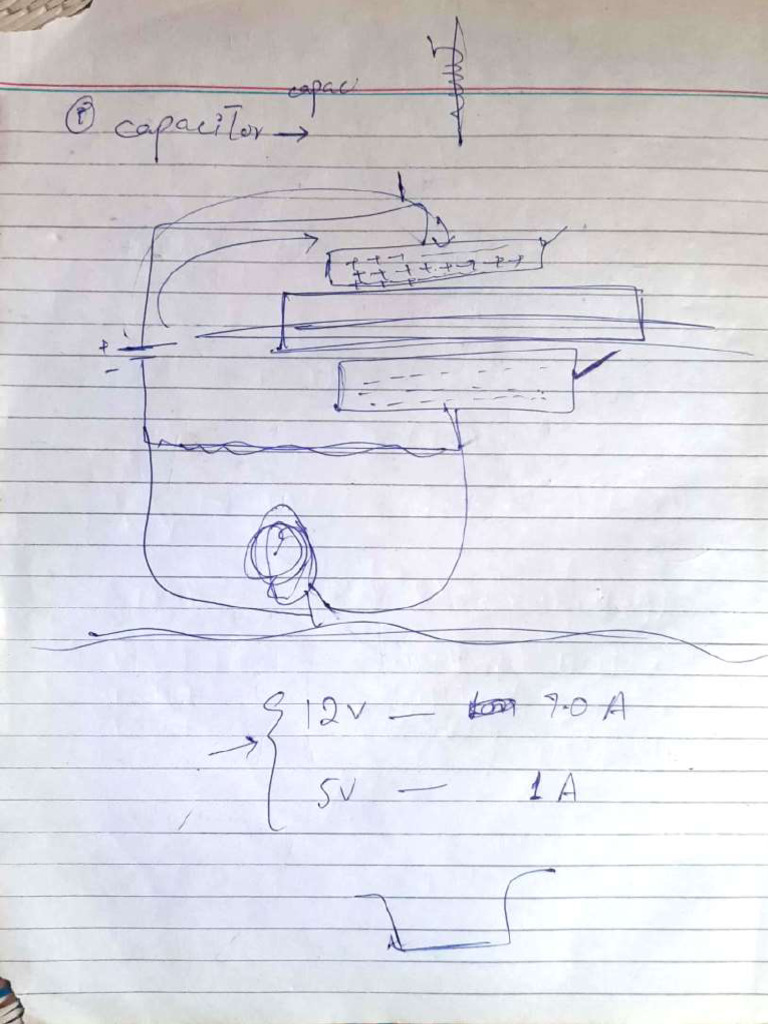 capaci
① capacitor →
+ + -
+ + + + + + +
+
-
12V — 7.0 A
→ { 5V — 1 A